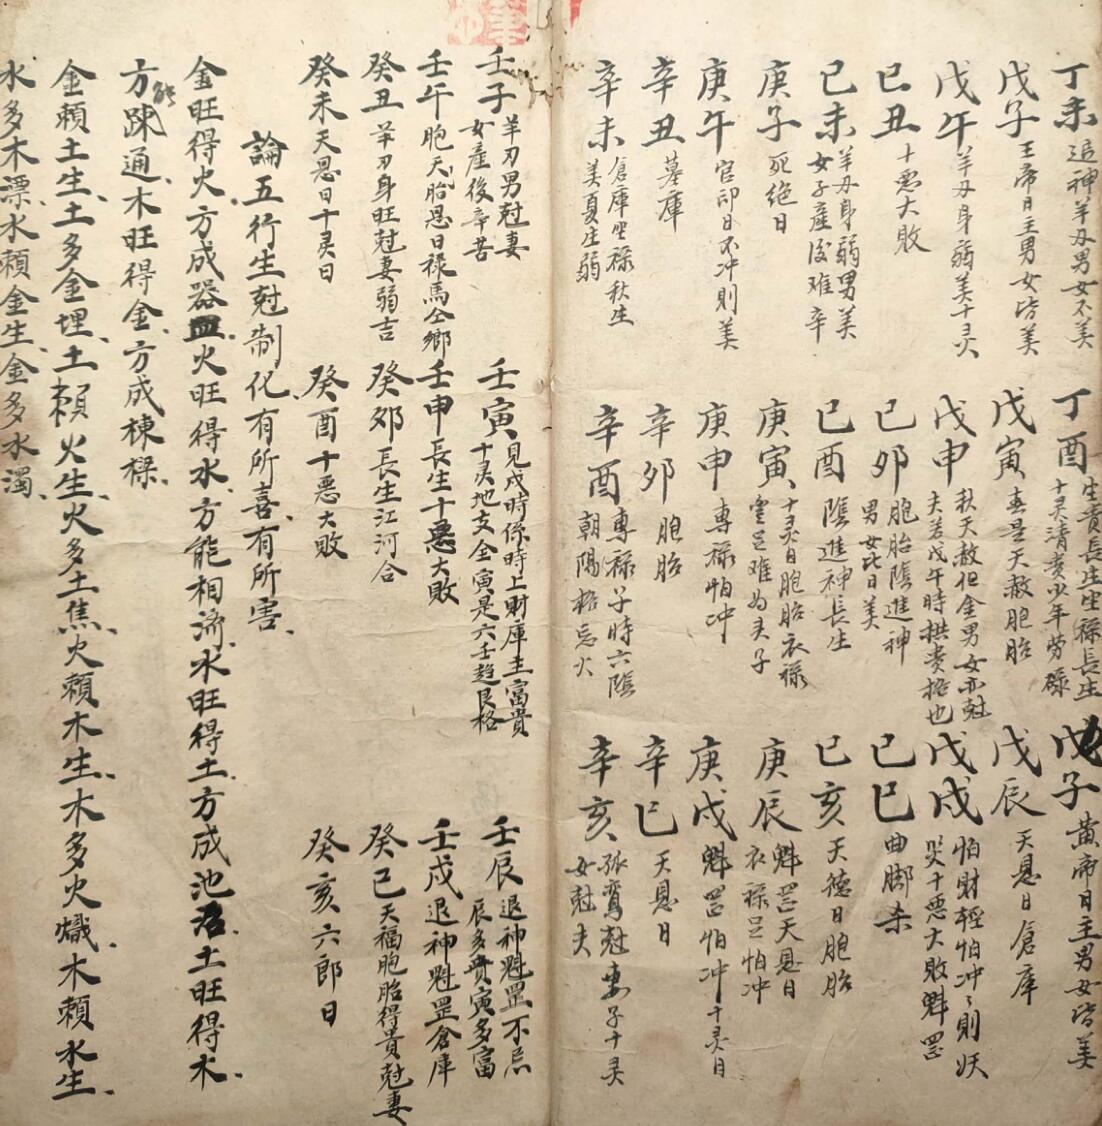 丁未 退神羊刃男女不美
丁酉 生貴長生坐祿長生
十灵清贵少年劳碌
戊子 黄帝日主男女皆美
戊子 王帝日主男女皆美
戊寅 春是天赦胞胎
戊辰 天恩日倉庫
戊午 羊刃身弱美十灵
戊申 秋天赦但金男女亦尅
夫若戊午時拱贵格也
戊戌 怕財輕怕冲冲則妖
災十悪大敗魁罡
己丑 十悪大敗
己卯 胞胎隂進神
男女此日美
己巳 曲脚杀
己未 羊刃身弱男美
女子産後难辛
己酉 隂進神長生
己亥 天德日胞胎
庚子 死绝日
庚寅 十灵日胞胎衣禄
豐足难为夫子
庚辰 魁罡天恩日
衣禄足怕冲
庚午 官印日不冲則美
庚申 專祿怕冲
庚戌 魁罡怕冲十灵日
辛丑 墓庫
辛卯 胞胎
辛巳 天恩日
辛未 倉庫坐禄秋生
美夏生弱
辛酉 專禄子時六隂
朝陽格忘火
辛亥 孤鸞尅妻子十灵
女尅夫
壬子 羊刃男尅妻
女産後辛苦
壬寅 見戌時係時上財庫主富貴
十灵地支全寅是六壬趋艮格
壬辰 退神魁罡不忌
辰多貴寅多富
壬午 胞天胎恩日禄馬仝鄉
壬申 長生十悪大敗
壬戌 退神魁罡倉庫
癸丑 羊刃身旺尅妻弱吉
癸卯 長生江河合
癸巳 天福胞胎得貴尅妻
癸未 天恩日十灵日
癸酉 十悪大敗
癸亥 六郎日
論五行生尅制化有所喜有所害
金旺得火方成器皿火旺得水方能相济水旺得土方成池沼土旺得木
方能疎通木旺得金方成棟樑
金賴土生土多金埋土賴火生火多土焦火賴木生木多火熾木賴水生
水多木漂水賴金生金多水濁